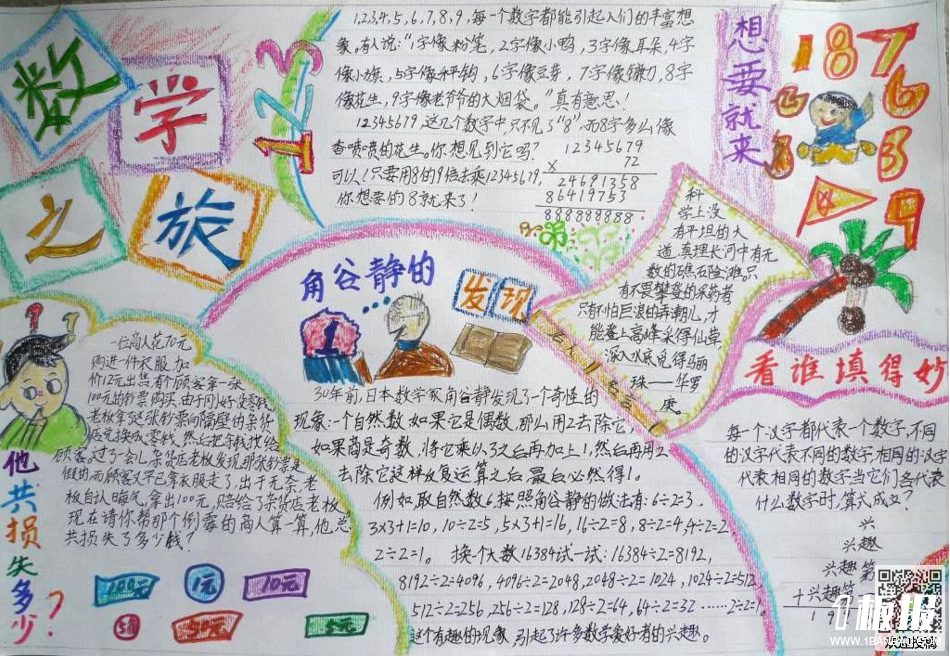 数
学
之
旅
1 2 3
1,2,3,4,5,6,7,8,9,每一个数字都能引起人们的丰富想
象,有人说:“1字像粉笔,2字像小鸭,3字像耳朵,4字
像小旗,5字像秤钩,6字像豆芽,7字像镰刀,8字
像花生,9字像老爷爷的大烟袋。”真有意思!
12345679,这几个数字中,只不见了“8”,而8字多么像
香喷喷的花生。你想见到它吗?
可以!只要用8的9倍去乘12345679,
你想要的8就来了!
12345679
× 72
24691358
86419753
888888888
想要就来
1 8 7
6
3
9
科
学上没
有平坦的大
道,真理长河中有无
数的礁石险滩。只
有不畏攀登的采药者
只有不怕巨浪的弄潮儿,才
能登上高峰采得仙草
深入水底觅得骊
珠——华罗
庚。
名人
名言
角谷静的
发现
30年前,日本数学家角谷静发现了一个奇怪的
现象:一个自然数,如果它是偶数,那么用2去除它,
如果商是奇数,将它乘以3之后再加上1,然后再用2
去除它这样反复运算之后,最后必然得1。
例如,取自然数6,按照角谷静的做法有:6÷2=3,
3×3+1=10,10÷2=5,5×3+1=16,16÷2=8,8÷2=4,4÷2=2
2÷2=1。换个大数16384试一试:16384÷2=8192,
8192÷2=4096,4096÷2=2048,2048÷2=1024,1024÷2=512
512÷2=256,256÷2=128,128÷2=64,64÷2=32……2÷2=1。
这个有趣的现象,引起了许多数学爱好者的兴趣。
一位商人花70元
购进一件衣服,加
价12元出售。有个顾客拿一张
100元的钞票购买,由于刚好没零钱,
老板拿这张钞票向隔壁的杂货
店兑换成零钱,然后把零钱找给
顾客,过了一会儿,杂货店老板发现那张钞票是
假的,而顾客又早已拿衣服走了,出于无奈,老
板自认晦气,拿出100元,赔给了杂货店老板。
现在请你帮那个倒霉的商人算一算,他总
共损失了多少钱?
他共损失多少?
100元
1元
10元
看谁填得妙
每一个汉字都代表一个数字,不同
的汉字代表不同的数字,相同的汉字
代表相同的数字,当它们各代表
什么数字时,算式成立?
兴
兴趣
兴趣第
+兴趣第
1板报
WWW.1BANBAO.COM
欢迎投稿